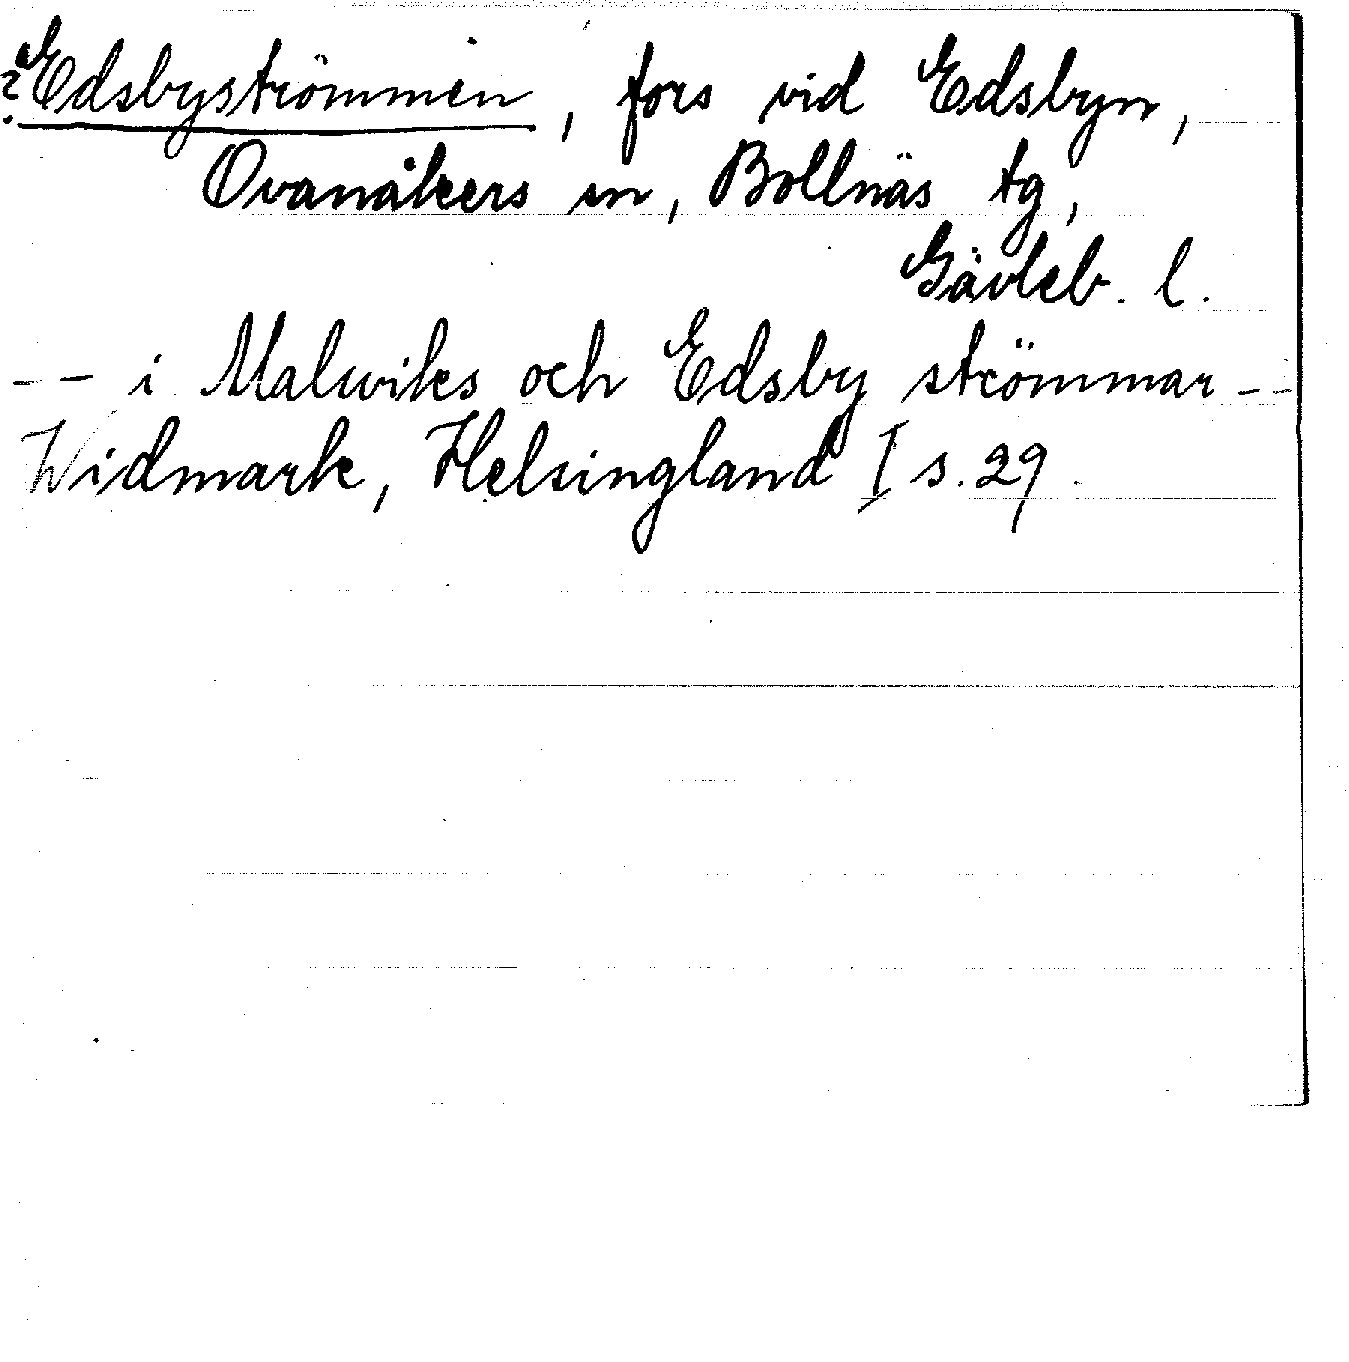 ?Edsbyströmmen, fors vid Edsbyn,
Ovanåkers sn, Bollnäs tg,
Gävleb. l.
-- i Malwiks och Edsby strömmar --
Widmark, Helsingland I s. 29.